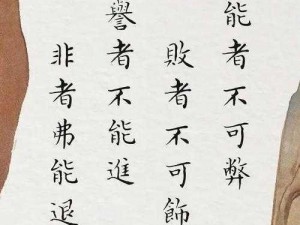 能者不可弊
敗者不可飾
譽者不能進
非者弗能退